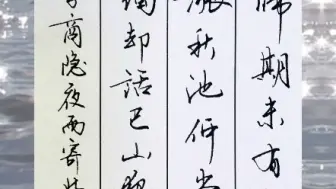 归期未有
涨秋池何当
烛却话巴山夜
商隐夜雨寄北